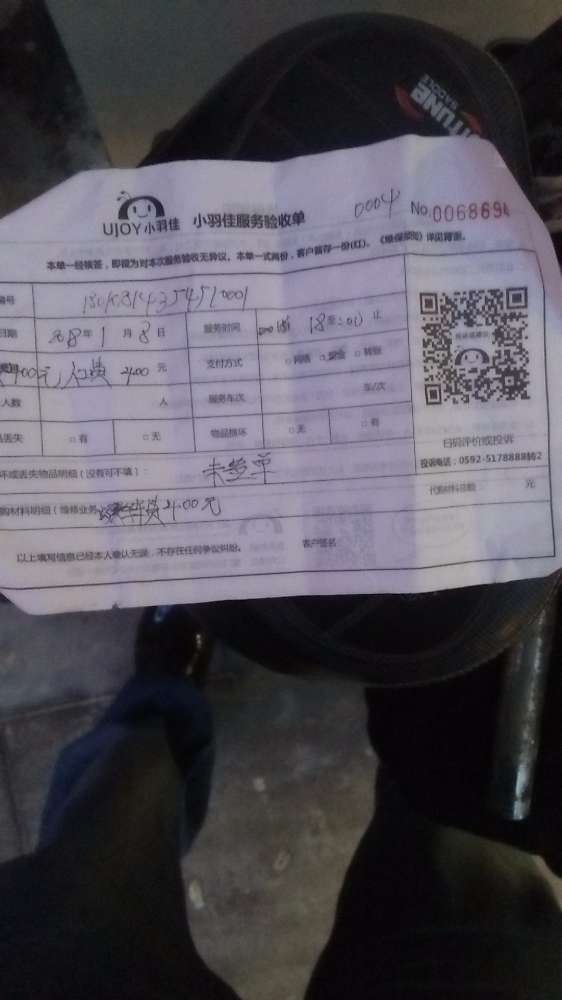 TUNE
SADDLE
UJOY小羽佳 小羽佳服务验收单 0004 No.0068694
本单一经签署，即视为对本次服务验收无异议。本单一式两份，客户留存一份(红)。《维保须知》详见背面。
编号
日期 2018年 1 月 8 日 服务时间 18至
400元,人工费 2400 元 支付方式 □网络 □现金 □转账
人数 人 服务车次 车/次
丢失 □有 □无 物品损坏 □无 □有
扫码评价或投诉
投诉电话：0592-5178888转2
坏或丢失物品明细（没有可不填）：
购材料明细（维修业务 费2400元 代购材料总额 元
以上填写信息已经本人确认无误，不存在任何争议纠纷。 客户签名